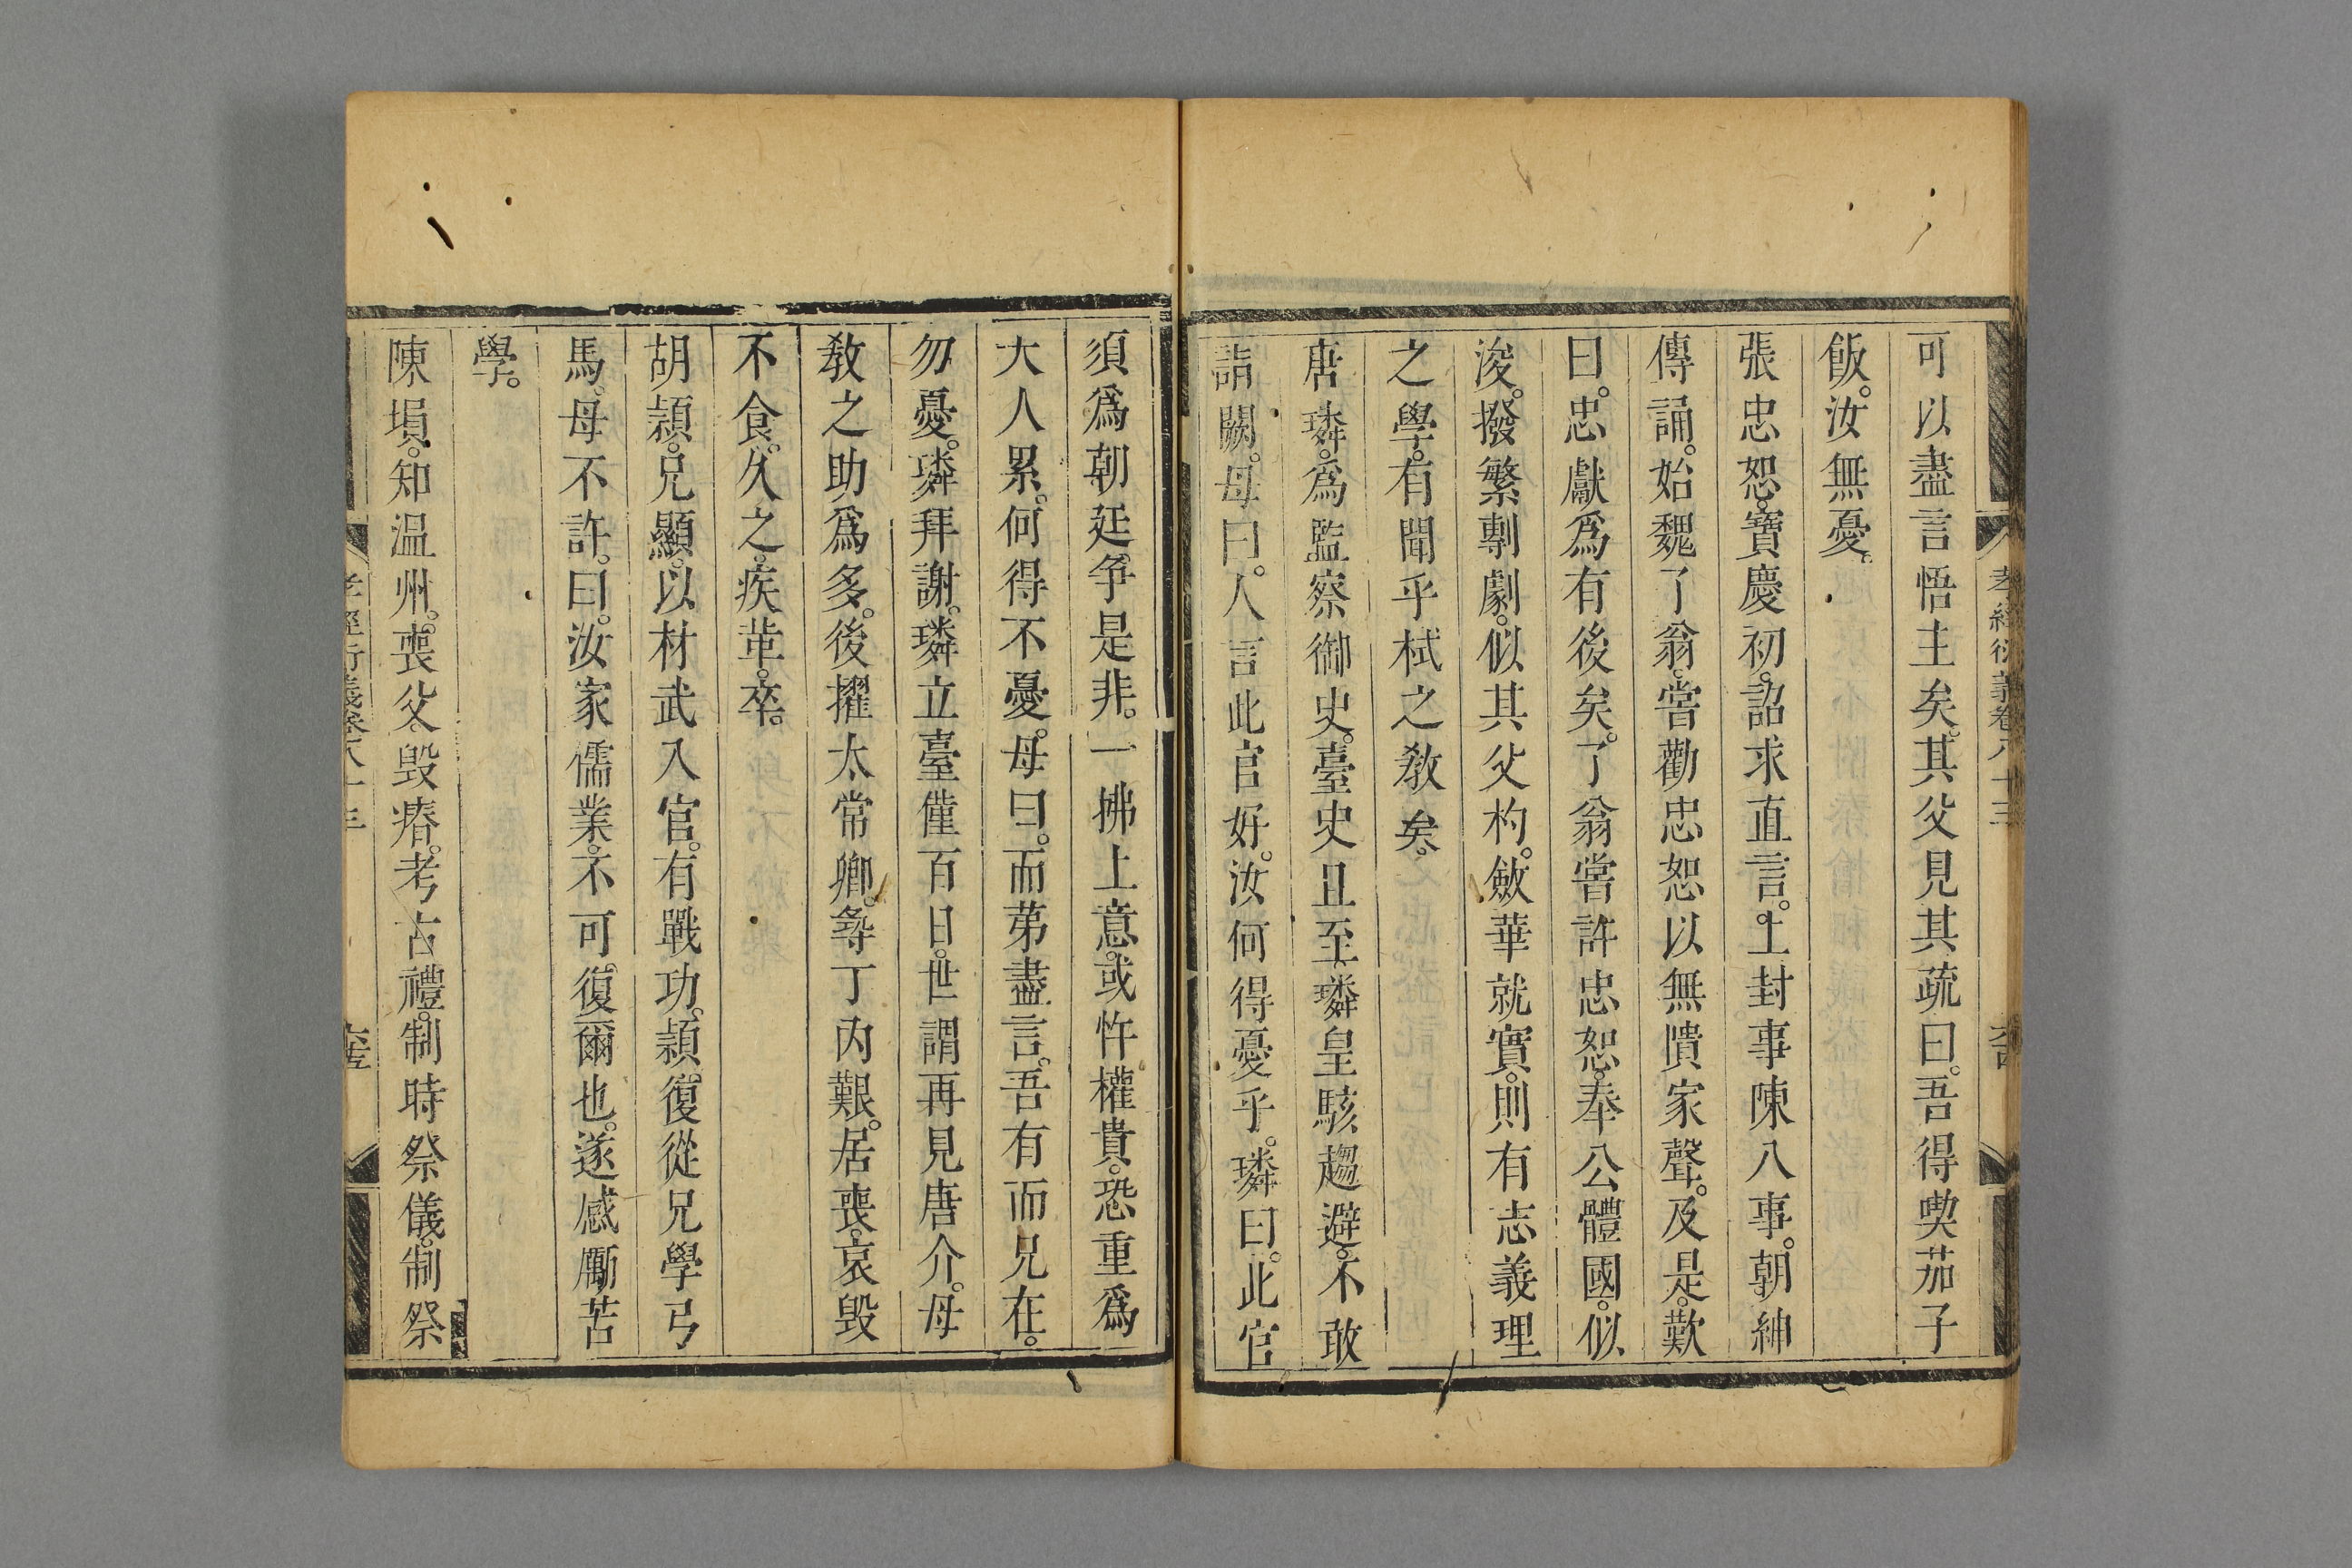 孝經衍義卷八十三
可以盡言悟主矣。其父見其疏曰。吾得喫茄子
飯。汝無憂。
張忠恕。寶慶初。詔求直言。上封事陳八事。朝紳
傳誦。始魏了翁。嘗勸忠恕以無隤家聲。及是。歎
曰。忠獻爲有後矣。了翁嘗許忠恕。奉公體國。似
浚。撥繁剸劇。似其父杓。斂華就實。則有志義理
之學。有聞乎栻之敎矣。
唐璘。爲監察御史。臺史且至。璘皇駭趨避。不敢
詣闕。母曰。人言此官好。汝何得憂乎。璘曰。此官
須爲朝廷爭是非。一拂上意。或忤權貴。恐重爲
大人累。何得不憂。母曰。而第盡言。吾有而兄在。
勿憂。璘拜謝。璘立臺僅百日。世謂再見唐介。母
敎之助爲多。後擢太常卿。尋丁內艱。居喪。哀毀
不食。久之。疾革。卒。
胡頴。兄顯。以材武入官。有戰功。頴復從兄學弓
馬。母不許。曰。汝家儒業。不可復爾也。遂感勵苦
學。
陳塤。知温州。喪父。毀瘠。考古禮。制時祭儀。制祭
孝經衍義卷八十三